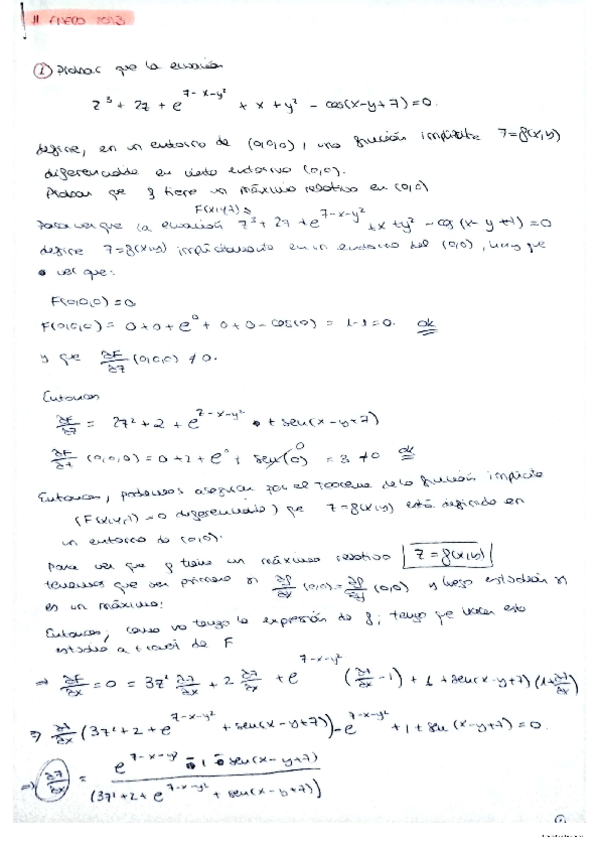 11 ENERO 2013
① Probar que la ecuación
z³ + 2z + e^{z-x-y²} + x + y² - cos(x-y+z) = 0.
define, en un entorno de (0,0,0), una función implícita z=f(x,y)
diferenciable en cierto entorno (0,0).
Probar que f tiene un máximo relativo en (0,0)
F(x,y,z) ≡
Para ver que la ecuación z³ + 2z + e^{z-x-y²} + x + y² - cos(x-y+z) = 0
define z=f(x,y) implícitamente en un entorno del (0,0), hay que
ver que:
F(0,0,0)=0
F(0,0,0) = 0+0+e⁰+0+0-cos(0) = 1-1=0. ok
y que ∂F/∂z (0,0,0) ≠ 0.
Entonces
∂F/∂z = 2z² + 2 + e^{z-x-y²} + sen(x-y+z)
∂F/∂z (0,0,0) = 0+2+e⁰ + sen(0) 0 = 3 ≠ 0 ok
Entonces, podemos asegurar por el Teorema de la función implícita
(F(x,y,z)=0 diferenciable) que z=f(x,y) está definido en
un entorno do (0,0).
Para ver que f tiene un máximo relativo z=f(x,y)
tenemos que ver primero si ∂f/∂x (0,0) = ∂f/∂y (0,0) y luego estudiar si
es un máximo:
Entonces, como no tengo la expresión de f, tengo que hacer este
estudio a través de F
⇒ ∂F/∂x = 0 = 3z² ∂z/∂x + 2 ∂z/∂x + e^{z-x-y²} (∂z/∂x - 1) + 1 + sen(x-y+z)(1+∂z/∂x)
⇒ ∂z/∂x (3z²+2+e^{z-x-y²} + sen(x-y+z)) - e^{z-x-y²} + 1 + sen(x-y+z) = 0.
⇒ ∂z/∂x = (e^{z-x-y²} - 1 - sen(x-y+z)) / (3z²+2+e^{z-x-y²} + sen(x-y+z))